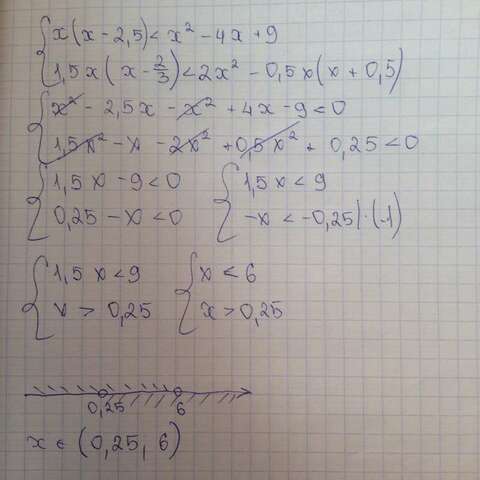 x(x - 2,5) < x² - 4x + 9
1,5x(x - 2/3) < 2x² - 0,5x(x + 0,5)
x² - 2,5x - x² + 4x - 9 < 0
1,5x² - x - 2x² + 0,5x² + 0,25 < 0
{ 1,5x - 9 < 0 { 1,5x < 9
0,25 - x < 0 -x < -0,25 | · (-1)
{ 1,5x < 9 { x < 6
x > 0,25 x > 0,25
0,25 6
x ∈ (0,25, 6)